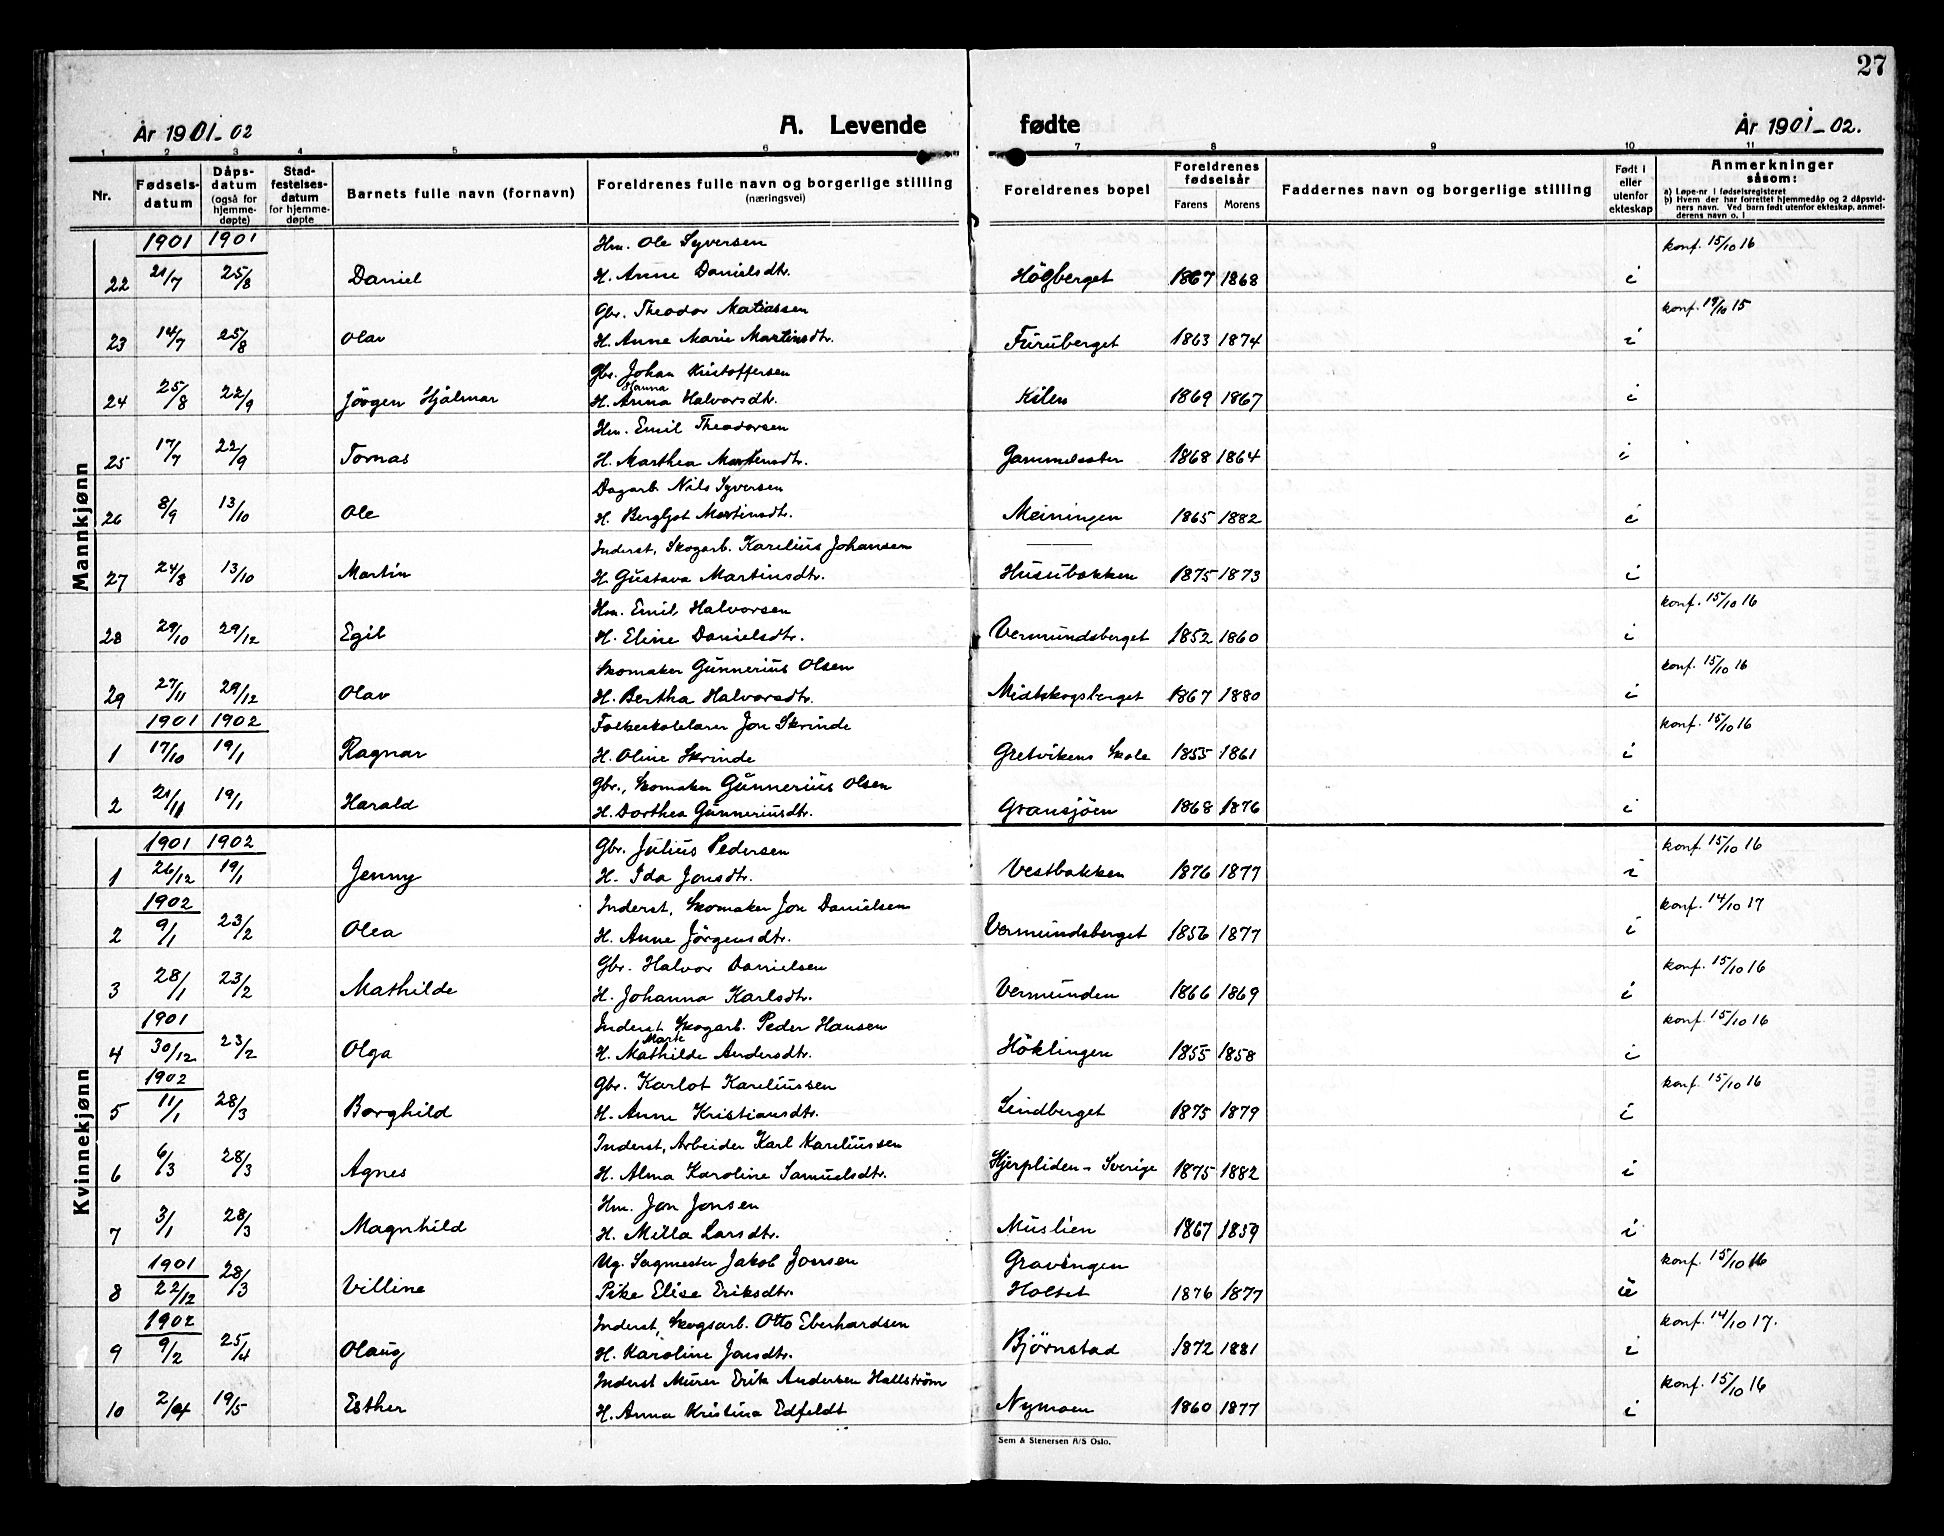 27
År 1901-02
A. Levende
fødte
År 1901-02.
1 2 3 4 5 6 7 8 9 10 11
Nr.
Fødsels-
datum
Dåps-
datum
(også for
hjemme-
døpte)
Stad-
festelses-
datum
for hjemme-
døpte
Barnets fulle navn (fornavn)
Foreldrenes fulle navn og borgerlige stilling
(næringsvei)
Foreldrenes bopel
Foreldrenes
fødselsår
Farens Morens
Faddernes navn og borgerlige stilling
Født i
eller
utenfor
ekteskap
Anmerkninger
såsom:
a) Løpe-nr i fødselsregisteret
b) Hvem der har forrettet hjemmedåp og 2 dåpsvid-
ners navn. Ved barn født utenfor ekteskap, anmel-
derens navn o. l
Mannkjønn
1901 1901 Hm. Ole Syversen konf. 15/10 16
22 21/7 25/8 Daniel H. Anne Danielsdtr. Högberget 1867 1868 i
Gbr. Theodor Matiassen konf. 19/10 15
23 14/7 25/8 Olav H. Anne Marie Martinsdtr. Furuberget 1863 1874 i
Gbr. Johan Kristoffersen
Hanna
24 25/8 22/9 Jörgen Hjalmar H. Anna Halvorsdtr. Kilen 1869 1867 i
Hm. Emil Theodorsen
25 17/7 22/9 Tomas H. Marthea Mortensdtr. Gammelsæter 1868 1864 i
Dagarb. Nils Syversen
26 8/9 13/10 Ole H. Bergljot Martinsdtr. Meiningen 1865 1882 i
Inderst, Skogarb. Karelius Johansen
27 24/8 13/10 Martin H. Gustava Martinsdtr. Husubakken 1875 1873 i
Hm. Emil Halvorsen konf. 15/10 16
28 29/10 29/12 Egil H. Eline Danielsdtr. Vermundsberget 1852 1860 i
Skomaker Gunnerius Olsen konf. 15/10 16
29 27/11 29/12 Olav H. Bertha Halvorsdtr. Midtskogsberget 1867 1880 i
1901 1902 Folkeskolelærer Jon Skrinde konf. 15/10 16
1 17/10 19/1 Ragnar H. Oline Skrinde Gretvikens Skole 1855 1861 i
Gbr., Skomaker Gunnerius Olsen
2 21/11 19/1 Harald H. Dorthea Gunneriusdtr. Gransjöen 1868 1876 i
Kvinnekjønn
1901 1902 Gbr. Julius Pedersen konf. 15/10 16
1 26/12 19/1 Jenny H. Ida Jonsdtr. Vestbakken 1876 1877 i
1902 Inderst, Skomaker Jon Danielsen konf. 14/10 17
2 9/1 23/2 Olea H. Anne Jörgensdtr. Vermundsberget 1856 1877 i
Gbr. Halvor Danielsen konf. 15/10 16
3 28/1 23/2 Mathilde H. Johanna Karlsdtr. Vermunden 1866 1869 i
1901 Inderst Skogarb. Peder Hansen konf. 15/10 16
4 30/12 23/2 Olga H. Mathilde Andersdtr. Höklingen 1855 1858 i
1902 Gbr. Karlot Kareliussen konf. 15/10 16
5 11/1 28/3 Borghild H. Anne Kristiansdtr. Lindberget 1875 1879 i
Inderst, Arbeider Karl Kareliussen
6 6/3 28/3 Agnes H. Alma Karoline Samuelsdtr. Hjerpliden - Sverige 1875 1882 i
Hm. Jon Jonsen
7 3/1 28/3 Magnhild H. Milla Larsdtr. Muslien 1867 1859 i
1901 Ug. Sagmester Jakob Jonsen Gravingen konf. 15/10 16
8 22/12 28/3 Villine Pike Elise Eriksdtr. Holtet 1876 1877
1902 Inderst, Skogsarb. Otto Eberhardsen konf. 14/10 17.
9 9/2 25/4 Olaug H. Karoline Jonsdtr. Bjørnstad 1872 1881 i
Inderst Murer Erik Andersen Hallström konf. 15/10 16
10 2/4 19/5 Esther H. Anna Kristina Edfeldt Nymoen 1860 1877 i
Sem & Stenersen A/S Oslo.